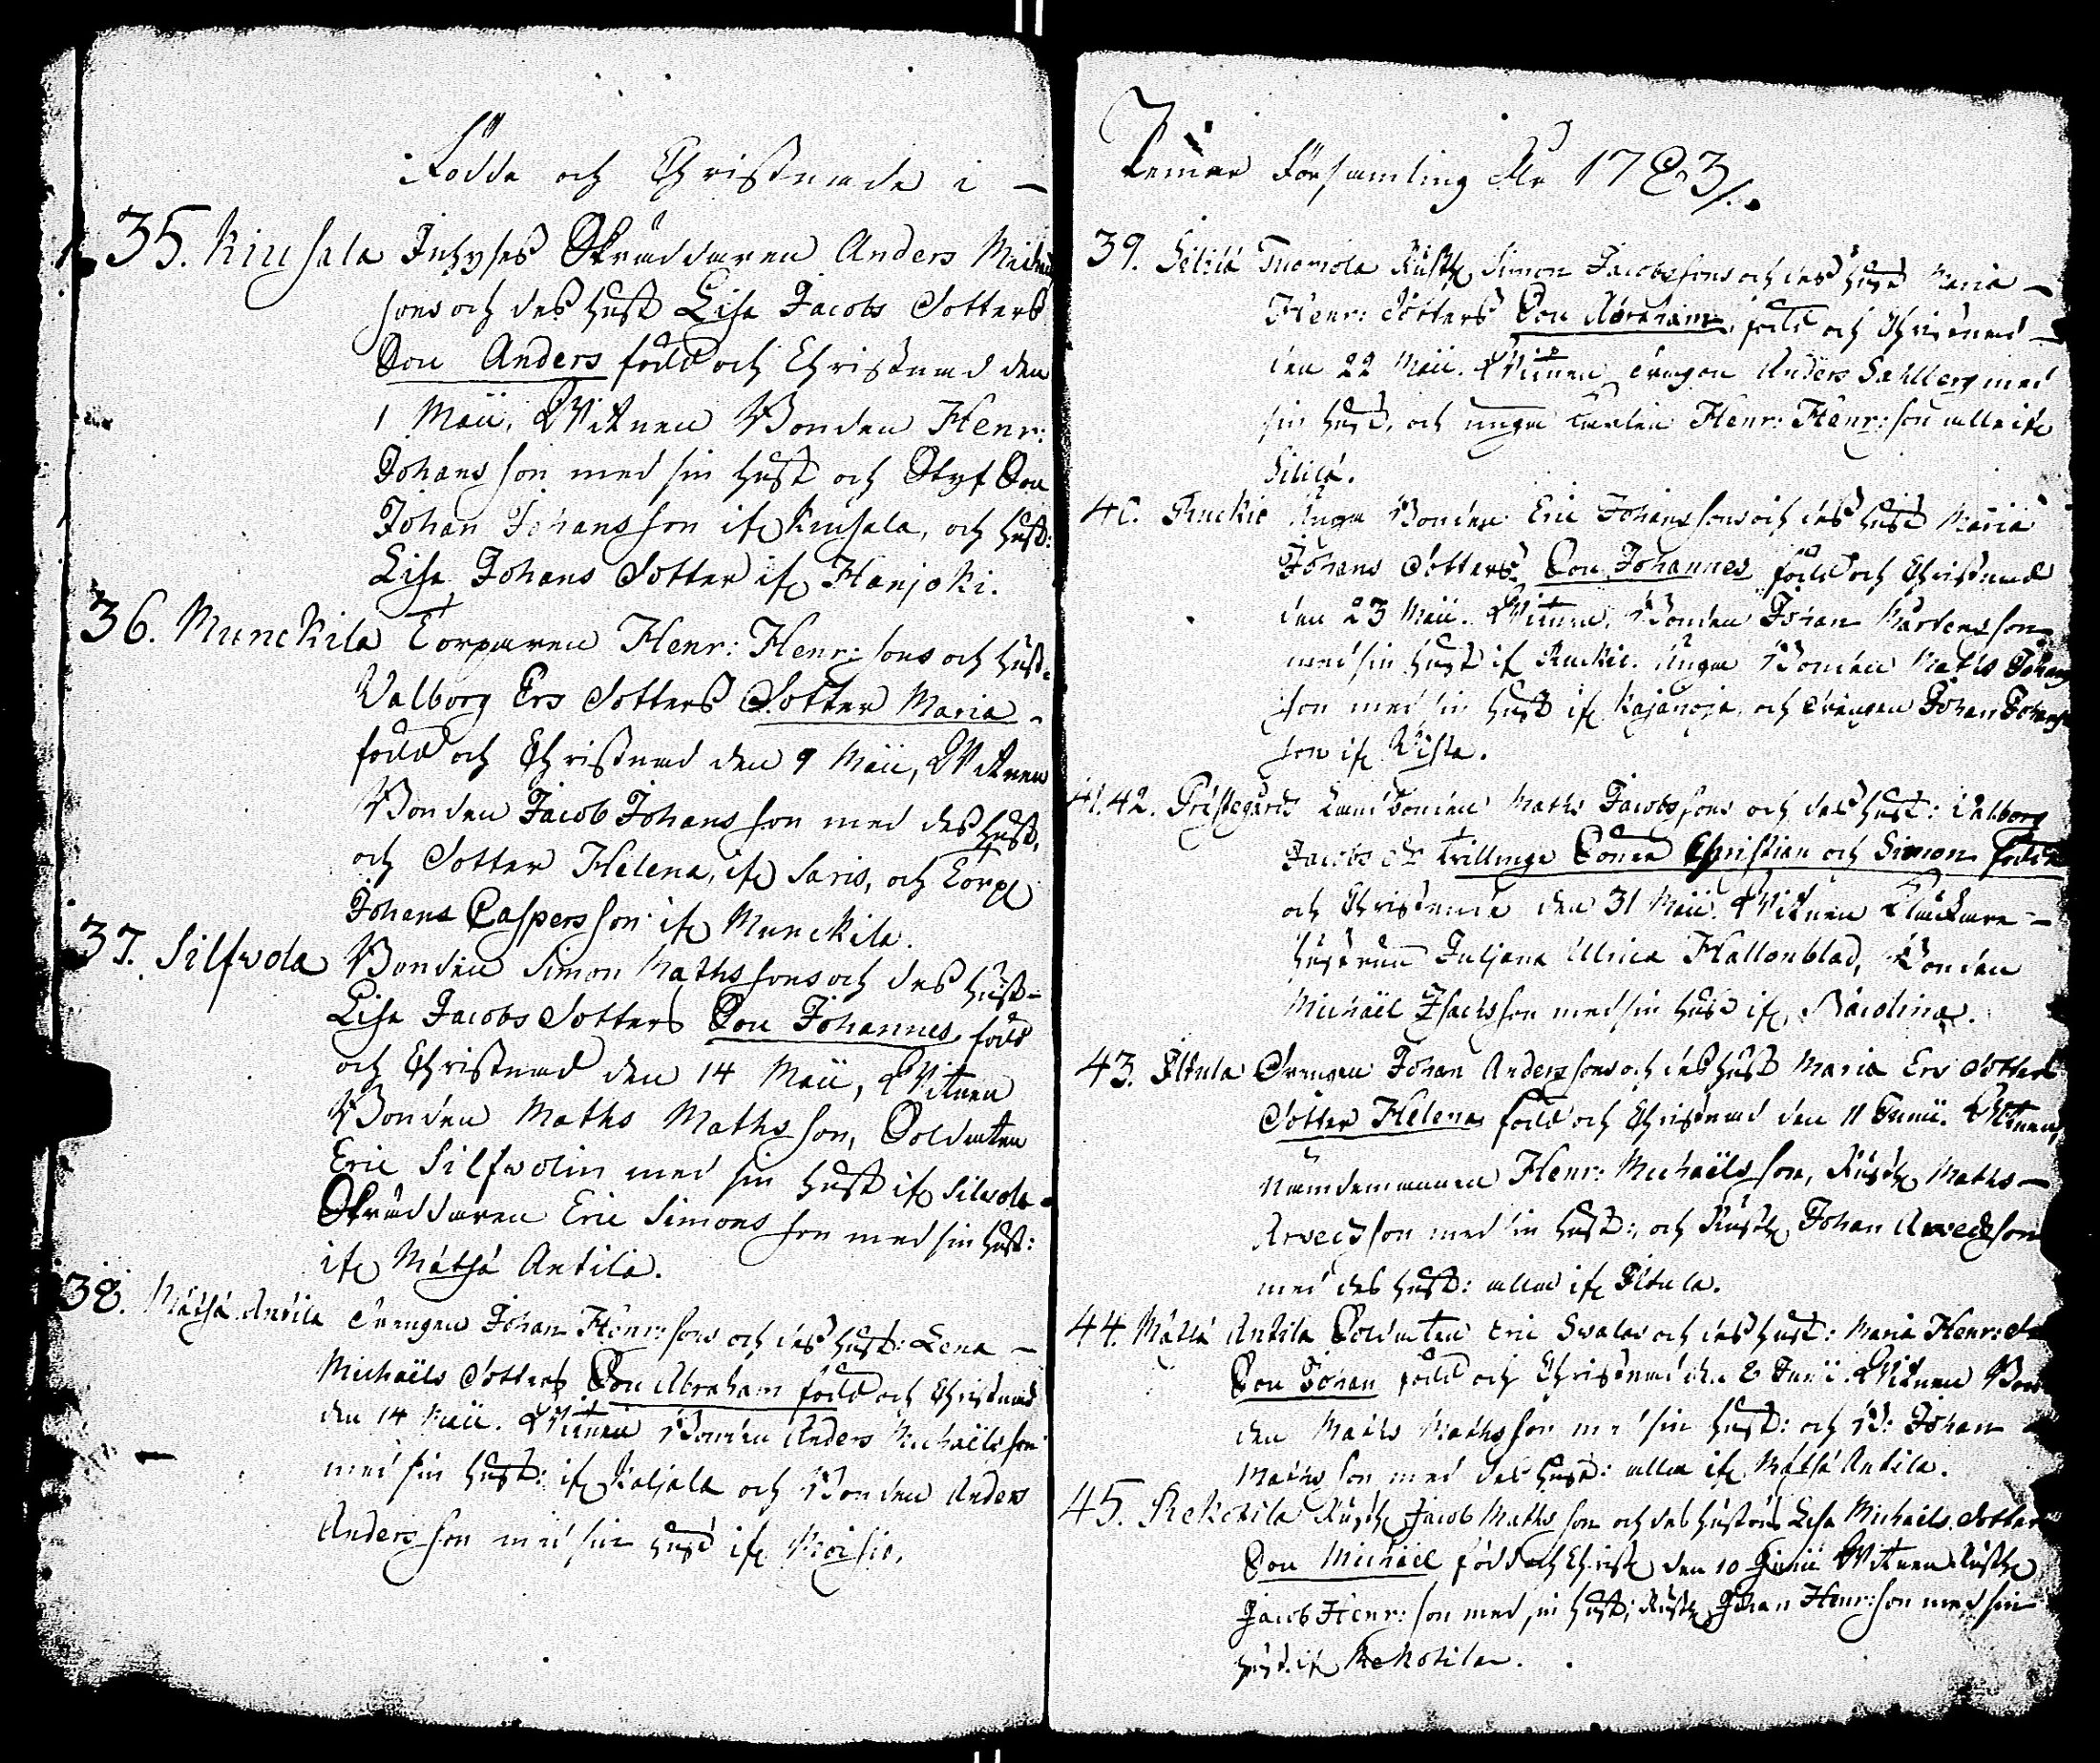 Födde och Christnade i —
35. Kiusala Inhyses Skräddaren Anders Michels
sons och des hust Lisa Jacobs Dotters
Son Anders född och Christnad den
1 Maii, Witnen Bonden Henr:
Johansson med sin hust och Styf Son
Johan Johansson ifr Kiusala, och hust:
Lisa Johans Dotter ifr Hanjoki.
36. Munckila Torparen Henr: Henr: sons och hust:
Valborg Ers Dotters Dotter Maria -
född och Christnad den 9 Maii, Witnen
Bonden Jacob Johansson med des hust,
och Dotter Helena, ifr Saris, och Torp
Johans Caspersson ifr Munckila.
37. Silfwola Bonden Simon Mathssons och des hust-
Lisa Jacobs Dotters Son Johannes, född
och Christnad den 14 Maii, Witnen
Bonden Maths Mathsson, Soldaten
Eric Silfwolin med sin hust ifr Silwola
Skräddaren Eric Simonsson med sin hust:
ifr Mätsä Antila.
38. Mätsä Antila Drengen Johan Henr: sons och des hust: Lena —
Michaëls Dotters Son Abraham född och Christnad
den 14 Maii. Witnen Bonden Anders Michaëlsson
med sin hust: ifr Kaljala och Bonden Anders
Andersson med sin hust ifr Moisio.
Lemur Församling År 1783/.
39. Sililä Tuomola Rusth Simon Jacobssons och des hust Maria —
Henr: Dotters Son Abraham, född och Christnad —
den 22 Maii. Witnen Drengen Anders Sahlberg med
sin hust, och unga Karlen Henr: Henr: son alla ifr
Sililä.
40. Ruckio Unga Bonden Eric Johanssons och des hust Maria
Johans Dotters Son Johannes född och Christnad
den 23 Maii. Witnen, Bonden Johan Mårtensson
med sin hust if Ruckio. Unga Bonden Maths Johans
son med sin hust ifr Kajanoja, och Drengen Johan Johans
son ifr Wista.
41. 42. Prästegårds Landbonden Maths Jacobssons och des hust: Valborg
Jacobs Dr Trillinge Söner Christian och Simon födde
och Christnade den 31 Maii. Witnen Klåckare-
hustrun Juljana Ulrica Hallonblad, Bonden
Michaël Isacsson med sin hust ifr
43. Iltula Drengen Johan Anderssons och des hust Maria Ers Dotters
Dotter Helena född och Christnad den 11 Junii. Witnen,
Nämdemannen Henr: Michaëlsson, Rusth Maths —
Arvedsson med sin hust:, och Rusth Johan Arvedsson
med des hust: alla ifr Iltula.
44. Mätsä Antila Soldaten Eric Svalas och des hust: Maria Henr: D
Son Johan född och Christnad den 8 Junii. Witnen Bon
den Maths Mathsson med sin hust: och B: Johan
Mathsson med des hust: alla ifr Mätsä Antila.
45. Rekotila Rusth Jacob Mathsson och des hustrus Lisa Michaels Dotters
Son Michäel född och Christ den 10 Junii Witnen Rusth
Jacob Henr: son med sin hust; Rusth Johan Henr: son med sin
hust. ifr Rekotila.